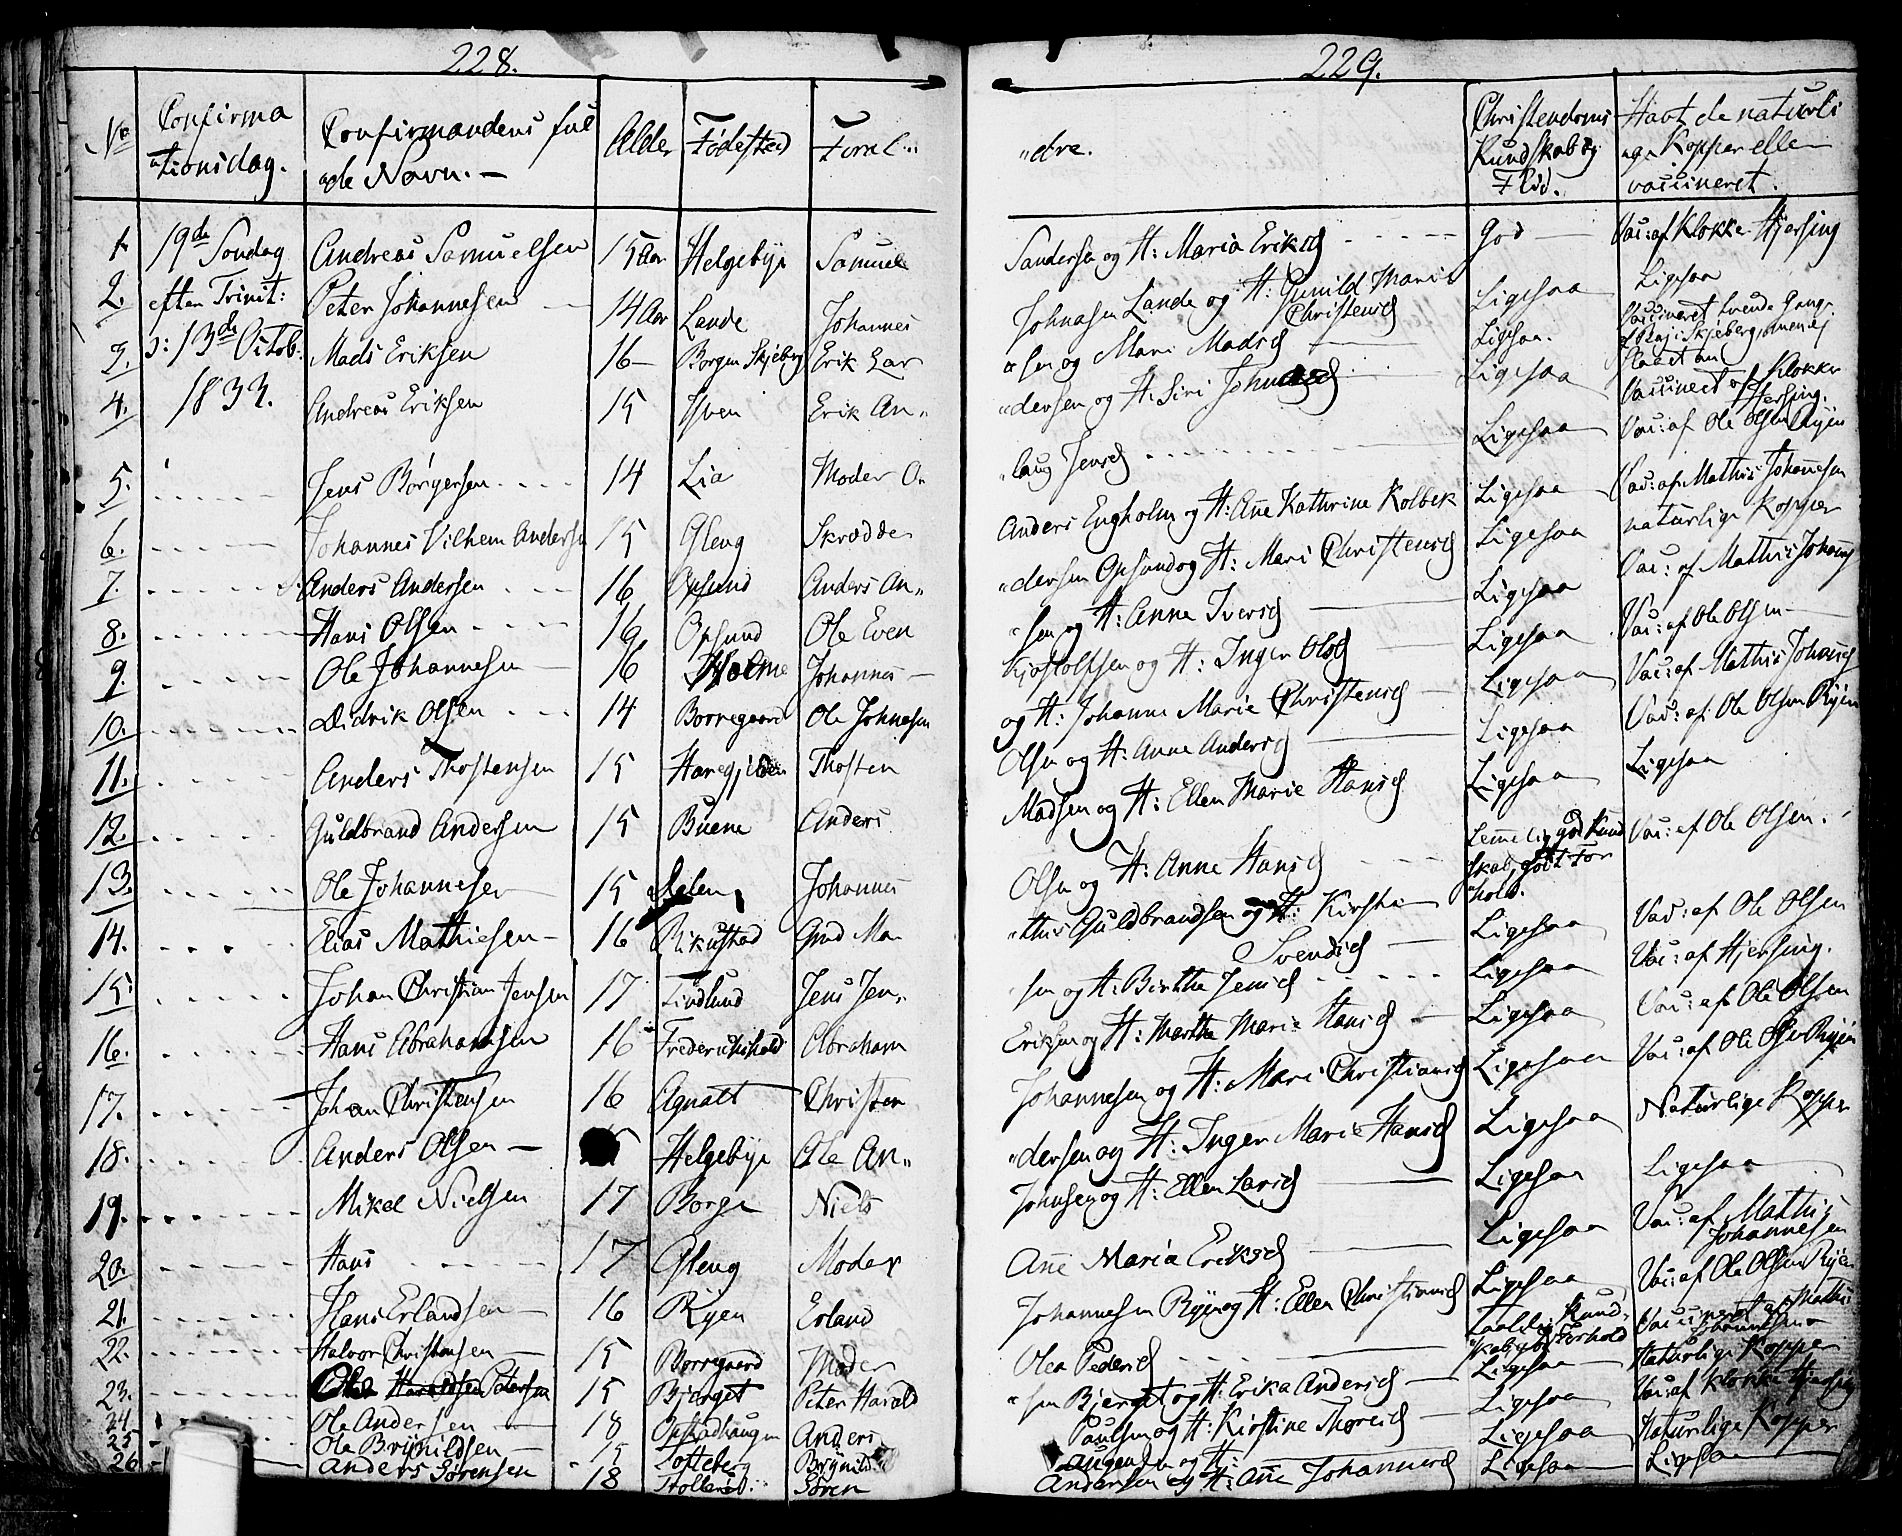 228.
No
Confirma
tionsdag.
Confirmandens ful
de Navn. —
Alder
Fødested
Foræl-
1. 19de Søndag Andreas Samuelsen 15 Aar Helgebye Samuel
2. efter Trinit: Peter Johannesen — 14 Aar Lande Johannes
3. ɔ: 13de Octob. Mads Eriksen 16 — Borgen Skjeberg Erik Lar
4. 1833. Andreas Eriksen 15 Hven Erik An-
5. Jens Børgersen 14 Lia Moder O-
6. Johannes Vilhem Andersen 15 Gleng Skrædder
7. Anders Andersen 16 Opsund Anders An-
8. Hans Olsen 16 Opsund Ole Even
9. Ole Johannesen 16 Holme Johannes
10. Didrik Olsen 14 Borregaard Ole Johnesen
11. Anders Thostensen 15 Haregjilden Thosten
12. Guldbrand Andersen 15 Buene Anders
13. Ole Johannesen 15 Johannes
14. Elias Mathiesen — 16 Rikustad Gud Ma-
15. Johan Christian Jensen 17 Tindlund Jens Jen-
16. Hans Abrahamsen 16 Frederichshald Abraham
17. Johan Christensen 16 Agnatt Christen
18. Anders Olsen — Helgebye Ole An-
19. Mikel Nielsen 17 Borge Niels
20. Hans 17 Gleng Moder
21. Hans Erlandsen — 16 Ryen Erland
22. Halvor Christensen — 15 Borregaard Moder
23. Ole Petersen 15 Bjørget Peter Harald
24. Ole Andersen — 18 Opstadhaugen Anders
25. Ole Brynildsen — 15 Lofteberg Brynild
26. Anders Sørensen 18 Søren
229.
dre.
Christendoms
Kundskab og
Flid.
Havt de naturli
ge Kopper eller
vaccineret.
Sandersen og H: Maria Eriksd God — Vac: af Klokker Hjersing
Johnasen Lande og H: Gunild Marie Ligesaa Ligesaa
Christensd
sen og Mari Madsd Ligesaa. Vaccineret tvende Gange
i Skjeberg, men ej
slaaet an
dersen og H. Siri Ligesaa Vaccineret af Klokker
Hersing.
laug Jensd Ligesaa Vac: af Ole Olsen Ryen
Anders Engholm og H: Ane Kathrine Kolbek Ligesaa Vac: af Mathis Johanesen
dersen Opsund og H: Mari Christensd Ligesaa naturlige Kopper
sen og H: Anne Iversd Ligesaa Vac: af Mathis Johanes
Kjøstolfsen og H: Inger Olsd Ligesaa Vac: af Ole Olsen
og H: Johanne Marie Christensd Ligesaa Vac: af Mathis Johanes
Olsen og H: Anne Andersd Ligesaa Vac: af Ole Olsen Ryen
Madsen og H: Ellen Marie Hansd Ligesaa Ligesaa
Olsen og H: Anne Hansd Temmelig god Kund Vac: af Ole Olsen.
skab, godt For
hold.
this Guldbrandsen og H: Kirstin Ligesaa Vac: af Ole Olsen
Svendsd
sen og H: Birthe Jensd Ligesaa Vac: af Hjersing.
Eriksen og H: Marthe Marie Hansd Ligesaa Vac: af Ole Olsen
Johannesen og H: Mari Christiansd Ligesaa Vac: af Ole Olsen Ryen
dersen og H: Inger Marie Hansd Ligesaa Naturlige Kopper
Johnsen og H: Ellen Larsd Ligesaa Ligesaa
Ane Maria Eriksd Ligesaa Vac: af Mathis
Johannesen
Johannesen Ryen og H: Ellen Christiansd Ligesaa Vac: af Ole Olsen Ryen
Olea Pedersd Taalelig Kund- Vaccineret af Mathis
skab, godt Forhold Johannesen
sen Bjørget og H: Erika Andersd Ligesaa Naturlige Kopper
Paulsen og H: Kirstine Thoresd Ligesaa Vac: af Klokker Hjersing
Ligesaa Naturlige Kopper
Andersen og H: Ane Johannesd Ligesaa Ligesaa